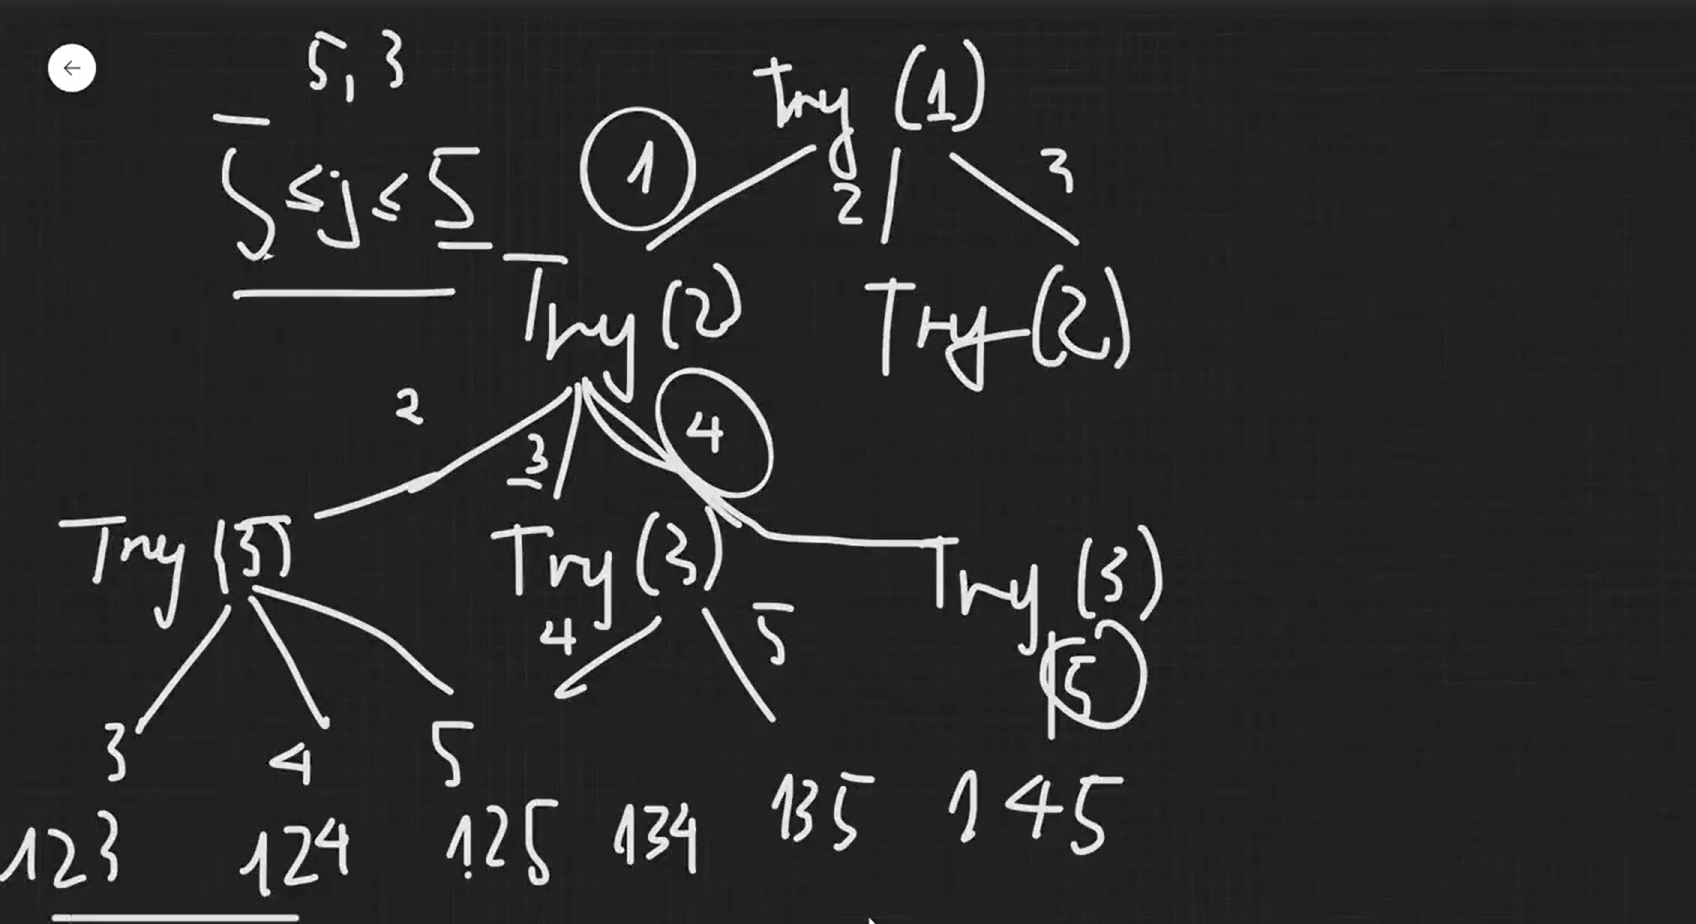 5, 3
Try (1)
1
2
3
5 ≤ j ≤ 5
Try (2)
Try (2)
2
3
4
Try (3)
Try (3)
Try (3)
4
5
5
3
4
5
123
124
125
134
135
145